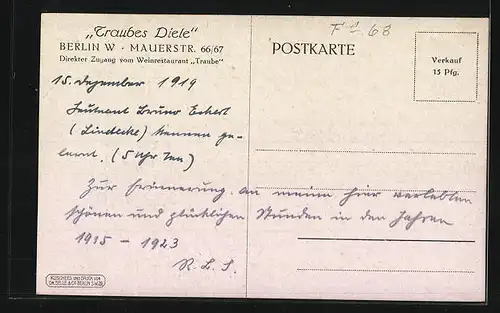 „Traubes Diele“
BERLIN W · MAUERSTR. 66/67
Direkter Zugang vom Weinrestaurant „Traube“
F 1 - 68
POSTKARTE
Verkauf
15 Pfg.
15. Dezember 1919
Leutnant Bruno Eckert
(Lindecke) kennen ge-
lernt. (5 Uhr Tee)
Zur Erinnerung an meine hier verlebten
schönen und glücklichen Stunden in den Jahren
1915 – 1923
R. L. S.